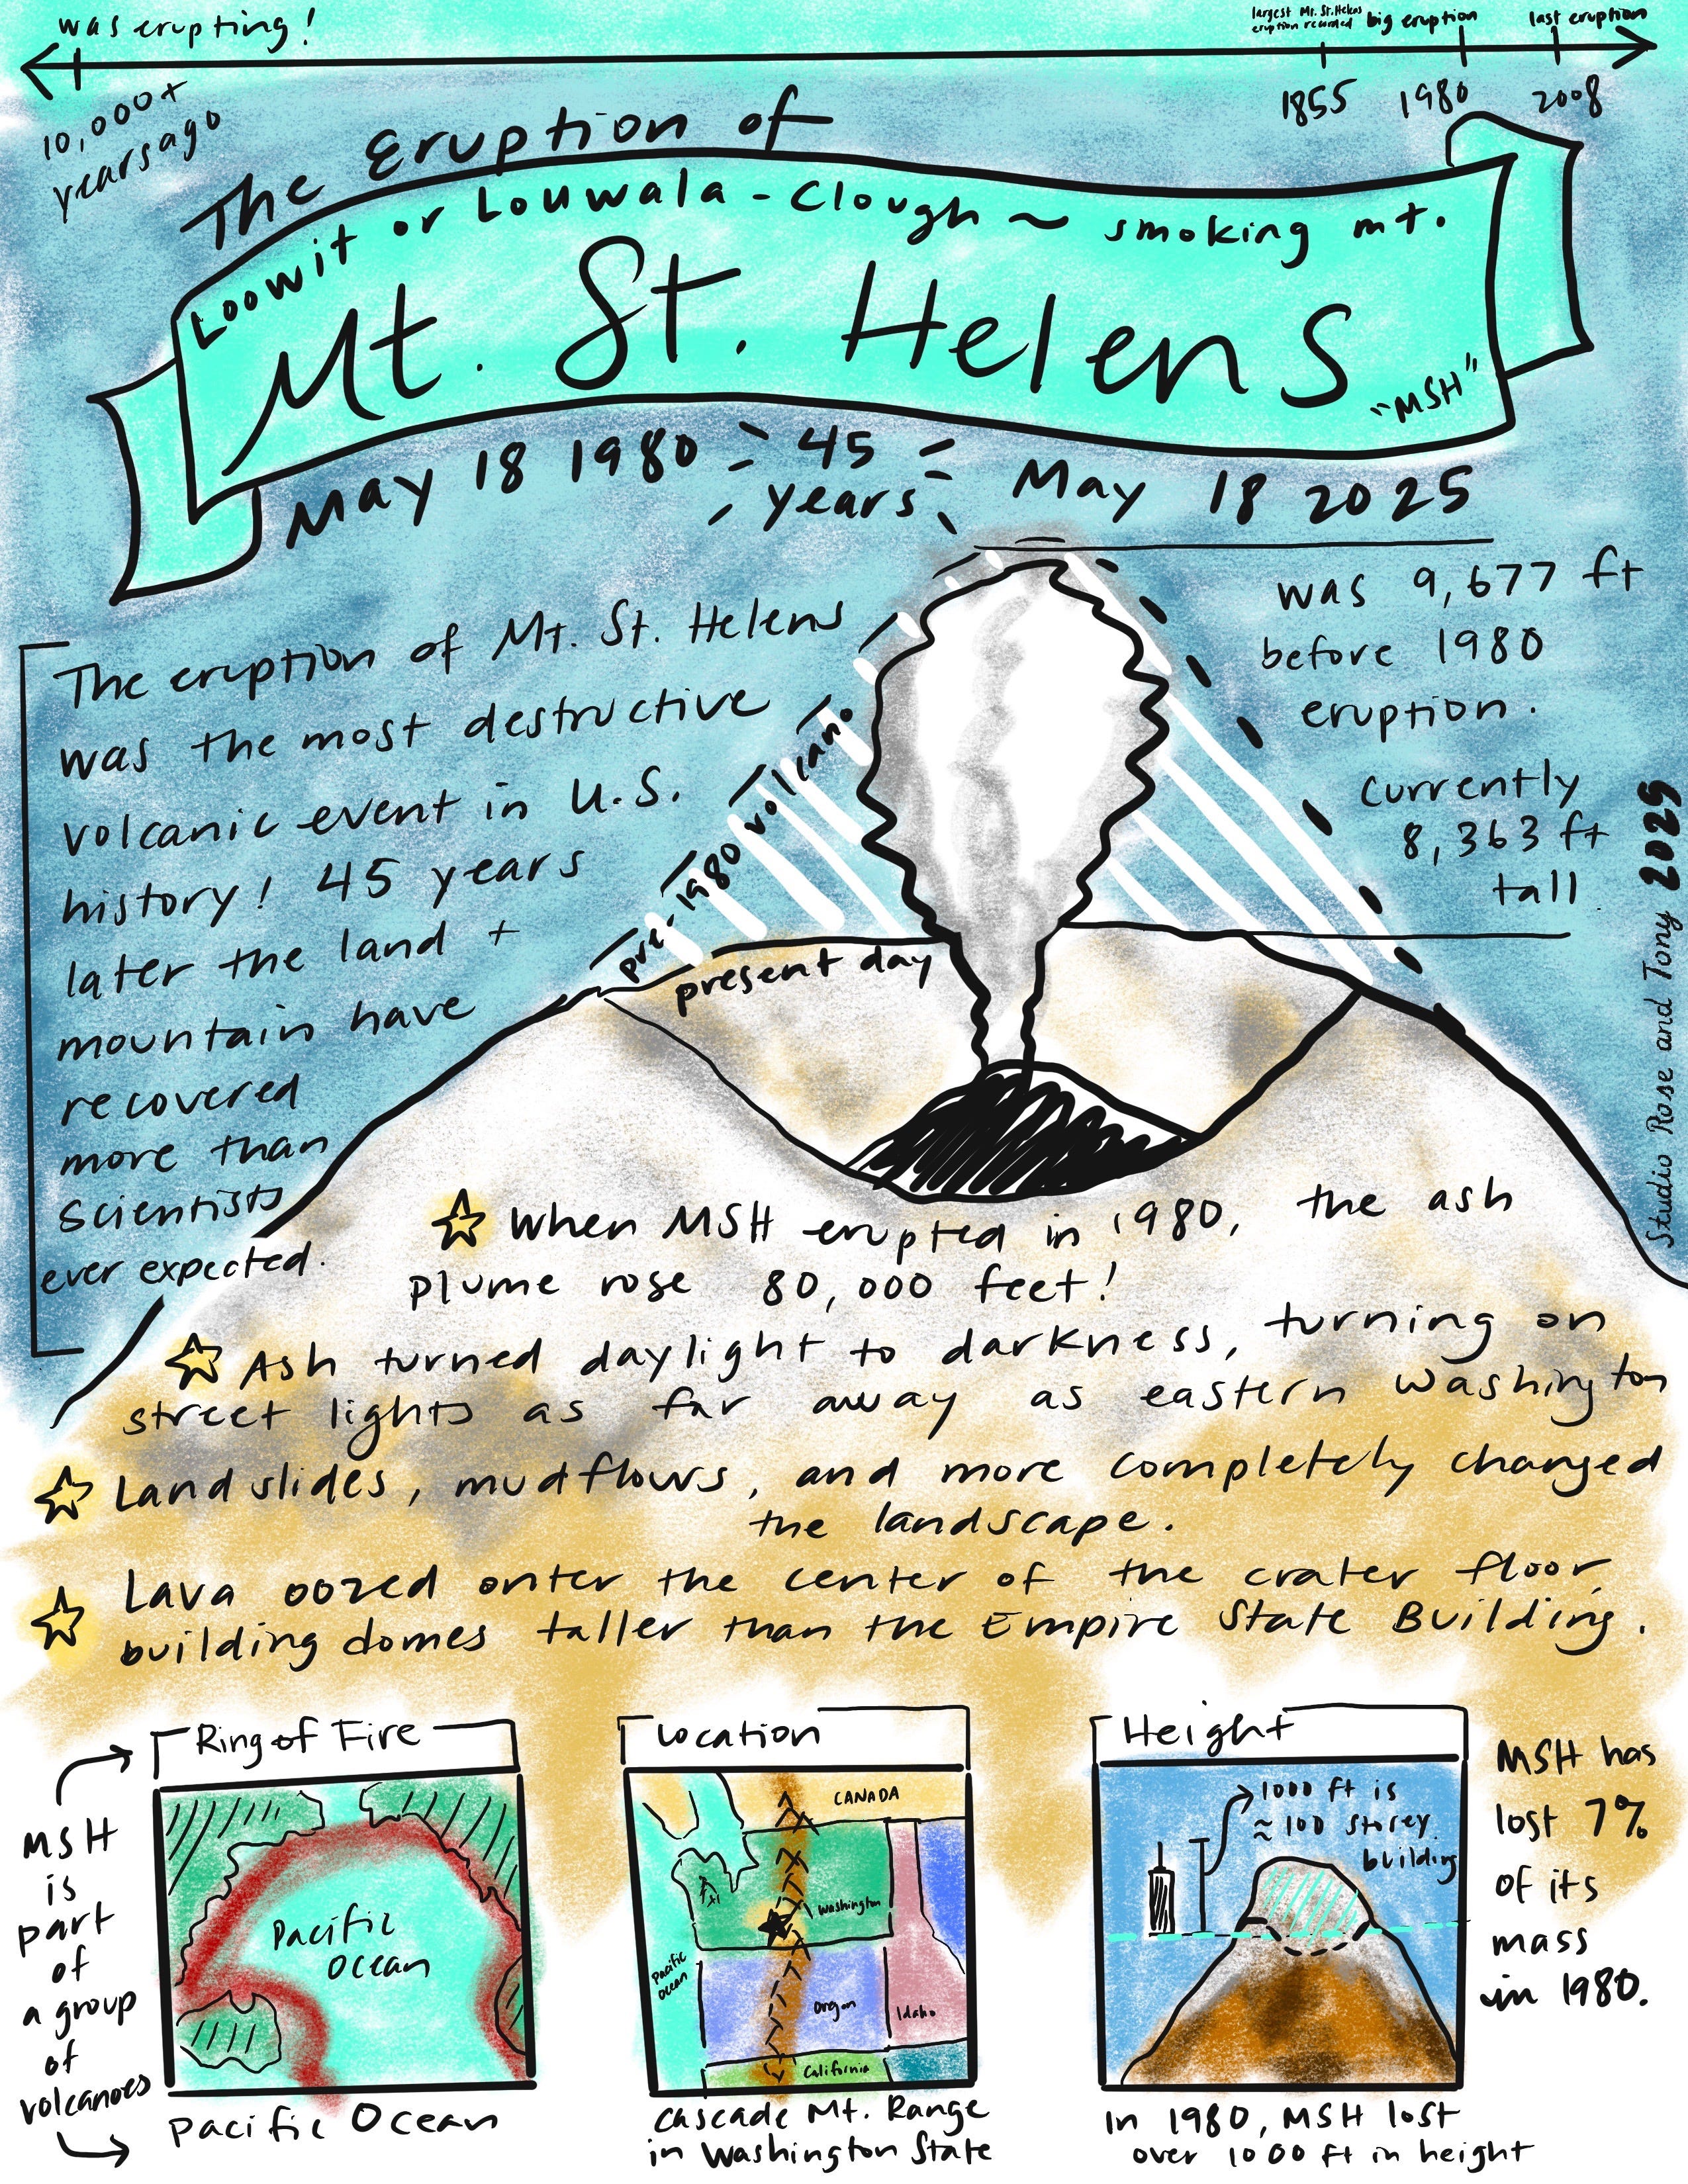 was erupting!
largest Mt. St. Helens
eruption recorded
big eruption
last eruption
10,000+
years ago
1855
1980
2008
The Eruption of
Loowit or Louwala-Clough ~ smoking mt.
Mt. St. Helens
"MSH"
May 18 1980
45
years
May 18 2025
The eruption of Mt. St. Helens
was the most destructive
volcanic event in U.S.
history! 45 years
later the land +
mountain have
recovered
more than
Scientists
ever expected.
pre-1980 volcano
present day
was 9,677 ft
before 1980
eruption.
Currently
8,363 ft
tall
Studio Rose and Tony 2025
When MSH erupted in 1980, the ash
plume rose 80,000 feet!
Ash turned daylight to darkness, turning on
street lights as far away as eastern Washington
Landslides, mudflows, and more completely changed
the landscape.
Lava oozed onter the center of the crater floor,
building domes taller than the Empire State Building.
MSH
is
part
of
a group
of
volcanoes
Ring of Fire
Pacific
Ocean
Pacific Ocean
Location
CANADA
Washington
Pacific
Ocean
Orgon
Idaho
California
Cascade Mt. Range
in Washington State
Height
1000 ft is
≈ 100 storey
building
In 1980, MSH lost
over 1000 ft in height
MSH has
lost 7%
of its
mass
in 1980.